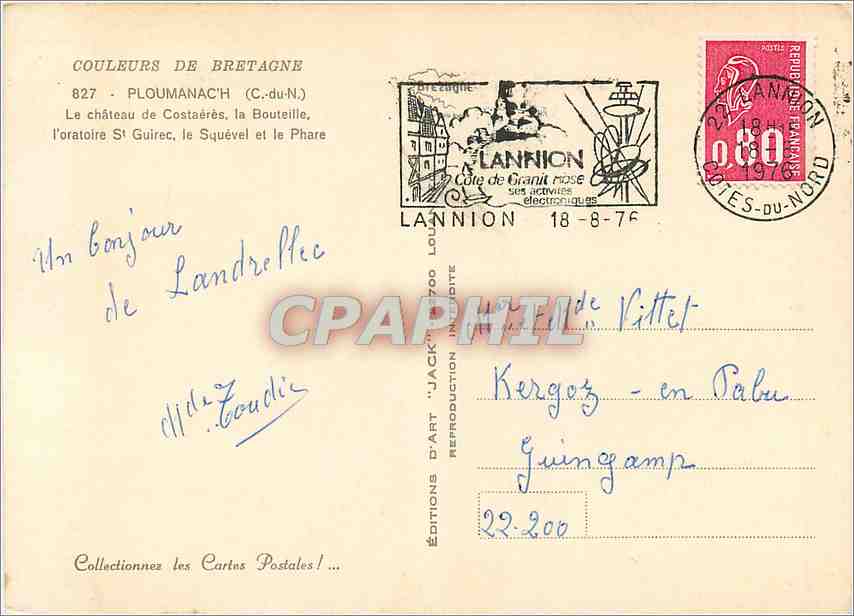 COULEURS DE BRETAGNE
827 - PLOUMANAC'H (C.-du-N.)
Le château de Costaérès, la Bouteille,
l'oratoire St Guirec, le Squével et le Phare
Bretagne
LANNION
Côte de Granit Rose
ses activités
électroniques
LANNION 18-8-76
POSTES
REPUBLIQUE FRANÇAISE
0,80
22 LANNION
18 H
18-8
1976
COTES-DU-NORD
Un bonjour
de Landrellec
Mde Toudic
CPAPHIL
Mr et Mde Vittet
Kergoz - en Pabu
Guingamp
22.200
ÉDITIONS D'ART "JACK"
REPRODUCTION INTERDITE
Collectionnez les Cartes Postales ! ...